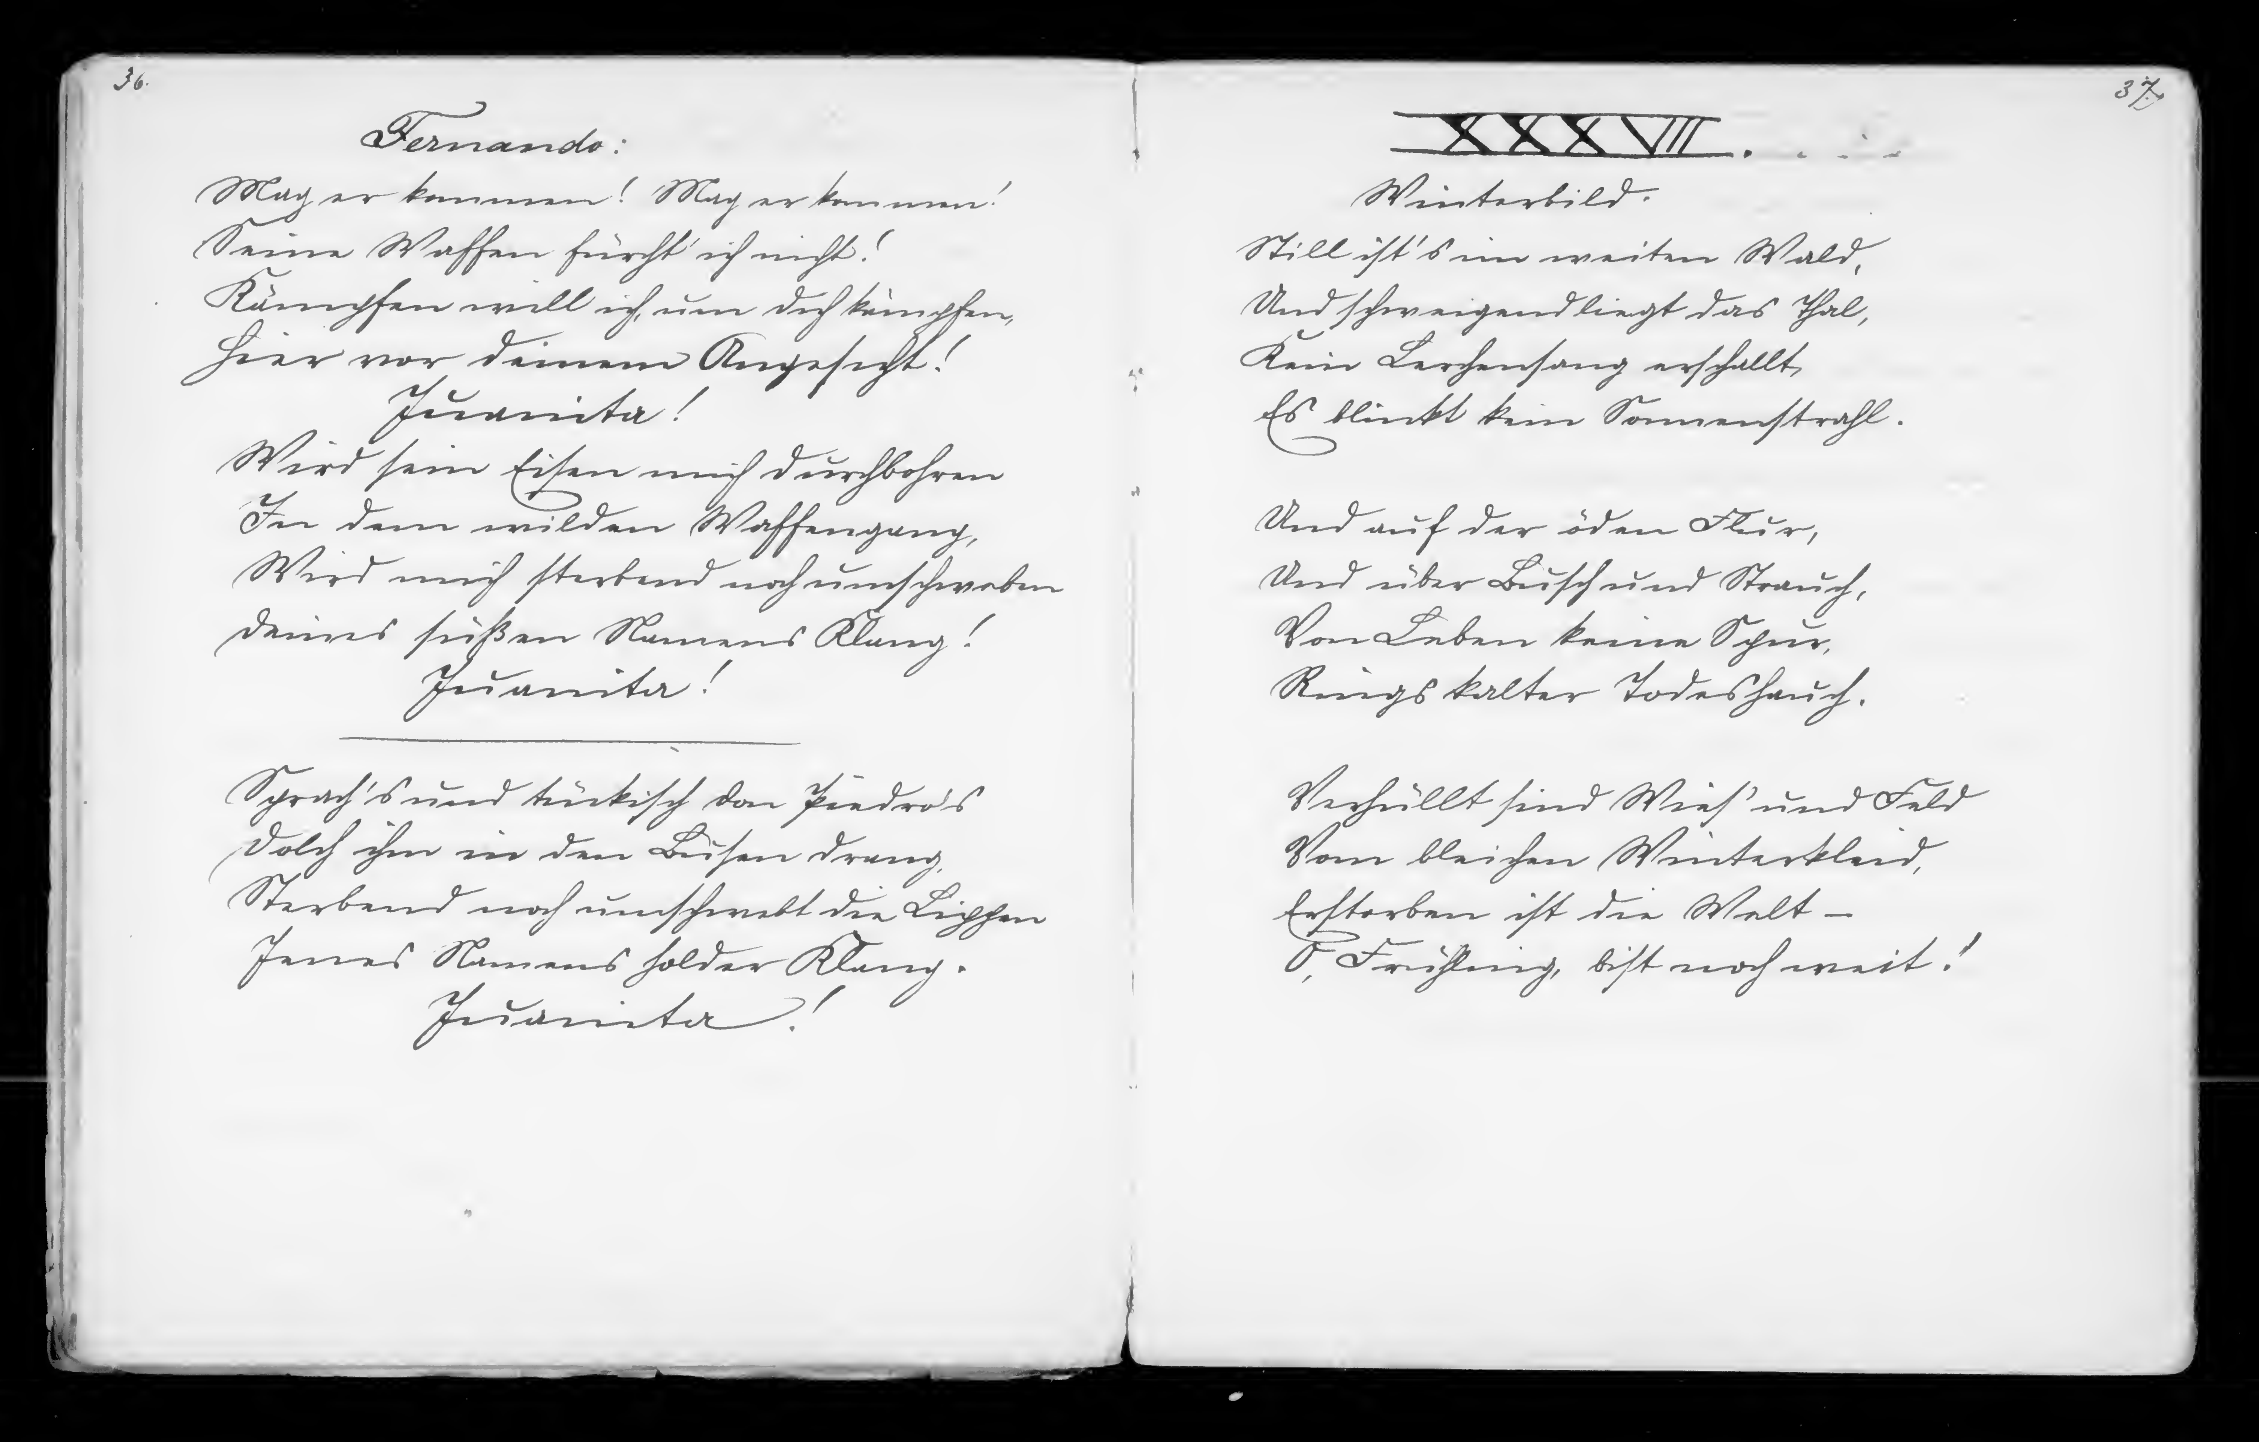 36.
Fernando:
Mag er kommen! Mag er kommen!
Seine Waffen fürcht' ich nicht!
Kämpfen will ich, um dich kämpfen,
Hier vor deinem Angesicht!
Juanita!
Wird sein Eisen mich durchbohren
In dem wilden Waffengang,
Wird mich sterbend noch umschweben
Deines süßen Namens Klang!
Juanita!
Sprach's und tückisch Don Piedro's
Dolch ihm in den Busen drang,
Sterbend noch umschwebt die Lippen
Jenes Namens holder Klang.
Juanita!
37.
XXXVII.
Winterbild.
Still ist's im weiten Wald,
Und schweigend liegt das Thal,
Kein Lerchensang erschallt,
Es blinkt kein Sonnenstrahl.
Und auf der öden Flur,
Und über Busch und Strauch,
Von Leben keine Spur,
Rings kalter Todeshauch.
Verhüllt sind Wies' und Feld
Vom bleichen Winterkleid,
Erstorben ist die Welt –
O, Frühling, bist noch weit!